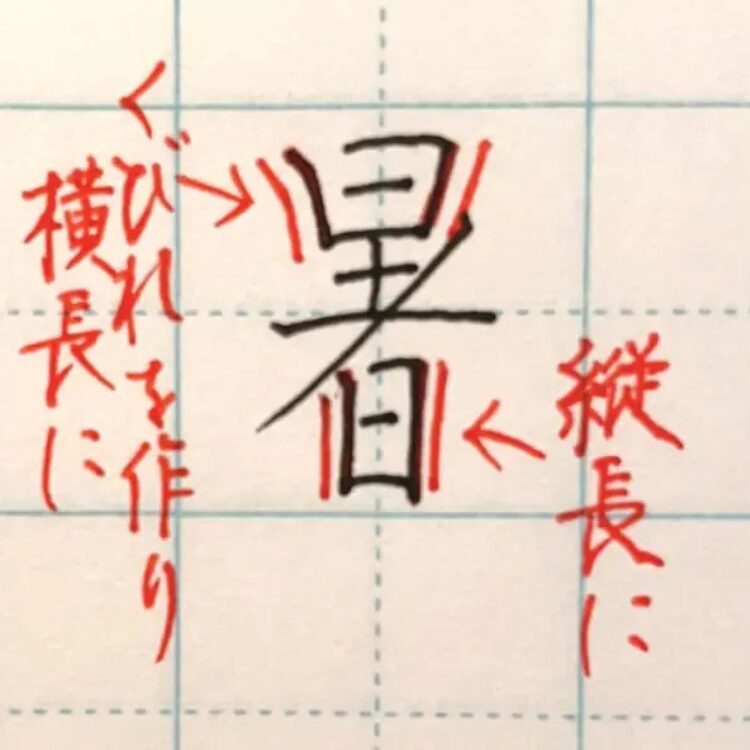 暑
くびれを作り
横長に
縦長に